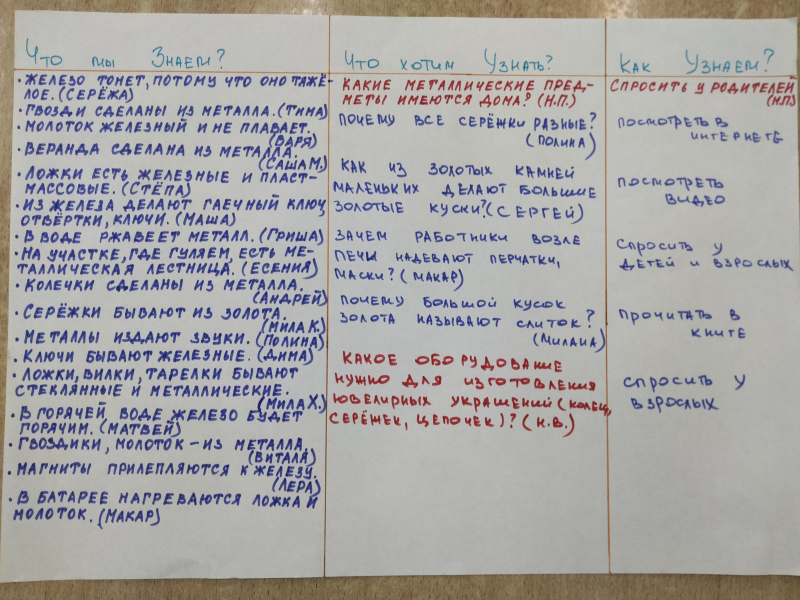 Что мы Знаем?
• Железо тонет, потому что оно тяжё-
лое. (Серёжа)
• Гвозди сделаны из металла. (Тима)
• Молоток железный и не плавает.
(Варя)
• Веранда сделана из металла.
(Саша М.)
• Ложки есть железные и пласт-
массовые. (Стёпа)
• Из железа делают гаечный ключ,
отвёртки, ключи. (Маша)
• В воде ржавеет металл. (Гриша)
• На участке, где гуляем, есть ме-
таллическая лестница. (Есения)
• Колечки сделаны из металла.
(Андрей)
• Серёжки бывают из золота.
(Мила К.)
• Металлы издают звуки. (Полина)
• Ключи бывают железные. (Дима)
• Ложки, вилки, тарелки бывают
стеклянные и металлические.
(Мила Х.)
• В горячей воде железо будет
горячим. (Матвей)
• Гвоздики, молоток – из металла.
(Виталя)
• Магниты прилепляются к железу.
(Лера)
• В батарее нагреваются ложка и
молоток. (Макар)
Что хотим Узнать?
Какие металлические пред-
меты имеются дома? (Н.П.)
Почему все серёжки разные?
(Полина)
Как из золотых камней
маленьких делают большие
золотые куски? (Сергей)
Зачем работники возле
печи надевают перчатки,
маски? (Макар)
Почему большой кусок
золота называют слиток?
(Милана)
Какое оборудование
нужно для изготовления
ювелирных украшений (колец,
серёжек, цепочек)? (Н.В.)
Как Узнаем?
Спросить у родителей
(Н.П.)
Посмотреть в
интернете
Посмотреть
видео
Спросить у
детей и взрослых
Прочитать в
книге
Спросить у
взрослых